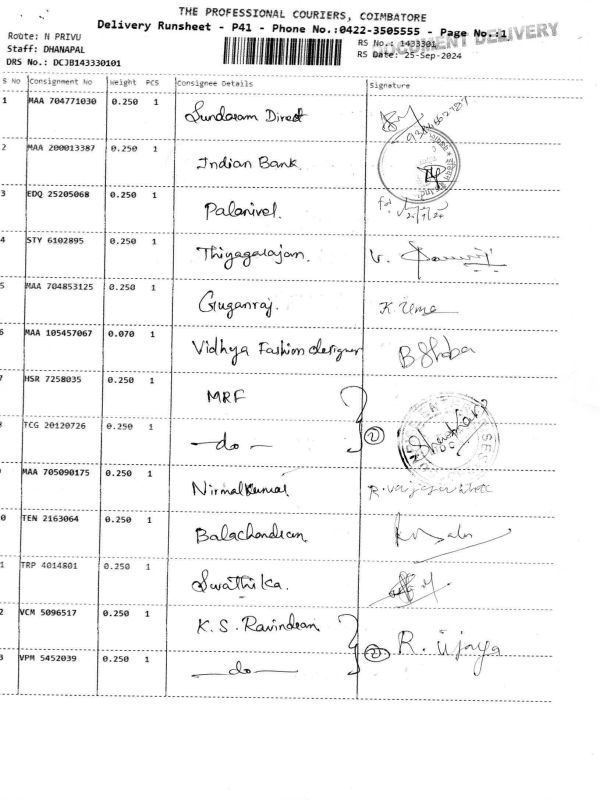 THE PROFESSIONAL COURIERS, COIMBATORE
Delivery Runsheet - P41 - Phone No.:0422-3505555 - Page No.:1
DOCUMENT DELIVERY
Route: N PRIVU
RS No.: 1433301
Staff: DHANAPAL
RS Date: 25-Sep-2024
DRS No.: DCJB143330101
S No Consignment No Weight PCS Consignee Details Signature
1 MAA 704771030 0.250 1 Sundaram Direct
2 MAA 200013387 0.250 1 Indian Bank
3 EDQ 25205068 0.250 1 Palanivel.
4 STY 6102895 0.250 1 Thiyagarajan.
5 MAA 704853125 0.250 1 Guganraj. K. Uma
6 MAA 105457067 0.070 1 Vidhya Fashion designer B Shoba
7 HSR 7258035 0.250 1 MRF
8 TCG 20120726 0.250 1 —do— 2
MAA 705090175 0.250 1 Nirmalkumar
0 TEN 2163064 0.250 1 Balachandran.
1 TRP 4014801 0.250 1 Swathika.
2 VCM 5096517 0.250 1 K. S. Ravindran
3 VPM 5452039 0.250 1 —do— 2 R. Vijaya